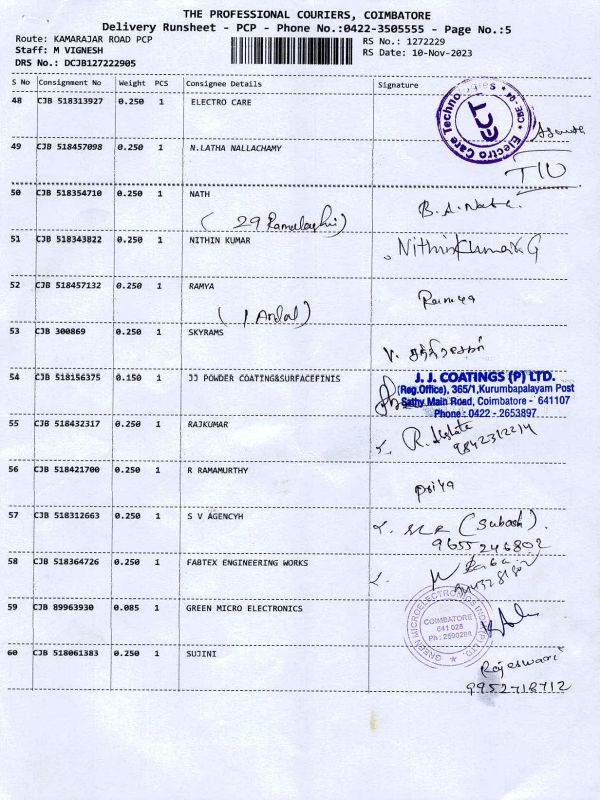 THE PROFESSIONAL COURIERS, COIMBATORE
Delivery Runsheet - PCP - Phone No.:0422-3505555 - Page No.:5
Route: KAMARAJAR ROAD PCP
Staff: M VIGNESH
DRS No.: DCJB127222905
RS No.: 1272229
RS Date: 10-Nov-2023
S No Consignment No Weight PCS Consignee Details Signature
48 CJB 518313927 0.250 1 ELECTRO CARE
Electro Care Techno Sales CBE-04
ECT
49 CJB 518457098 0.250 1 N.LATHA NALLACHAMY
50 CJB 518354710 0.250 1 NATH
51 CJB 518343822 0.250 1 NITHIN KUMAR Nithinkumar G
52 CJB 518457132 0.250 1 RAMYA Ramya
(1 Andal)
53 CJB 300869 0.250 1 SKYRAMS
54 CJB 518156375 0.150 1 JJ POWDER COATING&SURFACEFINIS
J. J. COATINGS (P) LTD.
(Reg.Office), 365/1,Kurumbapalayam Post
Sathy Main Road, Coimbatore - 641107
Phone : 0422 - 2653897
55 CJB 518432317 0.250 1 RAJKUMAR
56 CJB 518421700 0.250 1 R RAMAMURTHY Priya
57 CJB 518312663 0.250 1 S V AGENCYH (Subash).
9655246802
58 CJB 518364726 0.250 1 FABTEX ENGINEERING WORKS
59 CJB 89963930 0.085 1 GREEN MICRO ELECTRONICS
GREEN MICROELECTRONICS IND (P) LTD.
COIMBATORE
641 028
Ph : 2590288
60 CJB 518061383 0.250 1 SUJINI Rajeswari
9952718712